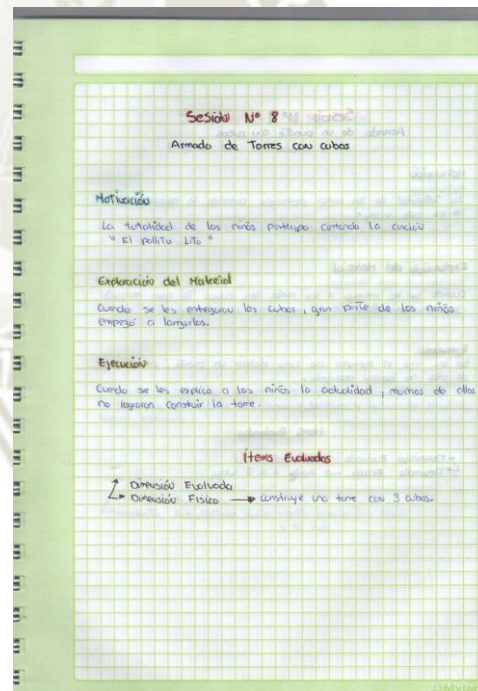 Sesión N° 8
Armado de Torres con cubos
Motivación
La totalidad de los niños participo cantando la canción
" El pollito Lito "
Exploración del Material
Cuando se les entregaron los cubos, gran parte de los niños
empezó a lanzarlos.
Ejecución
Cuando se les explico a los niños la actividad, muchos de ellos
no lograron construir la torre.
Items Evaluados
Dimensión Evaluada
Dimensión Físico → construye una torre con 3 cubos.